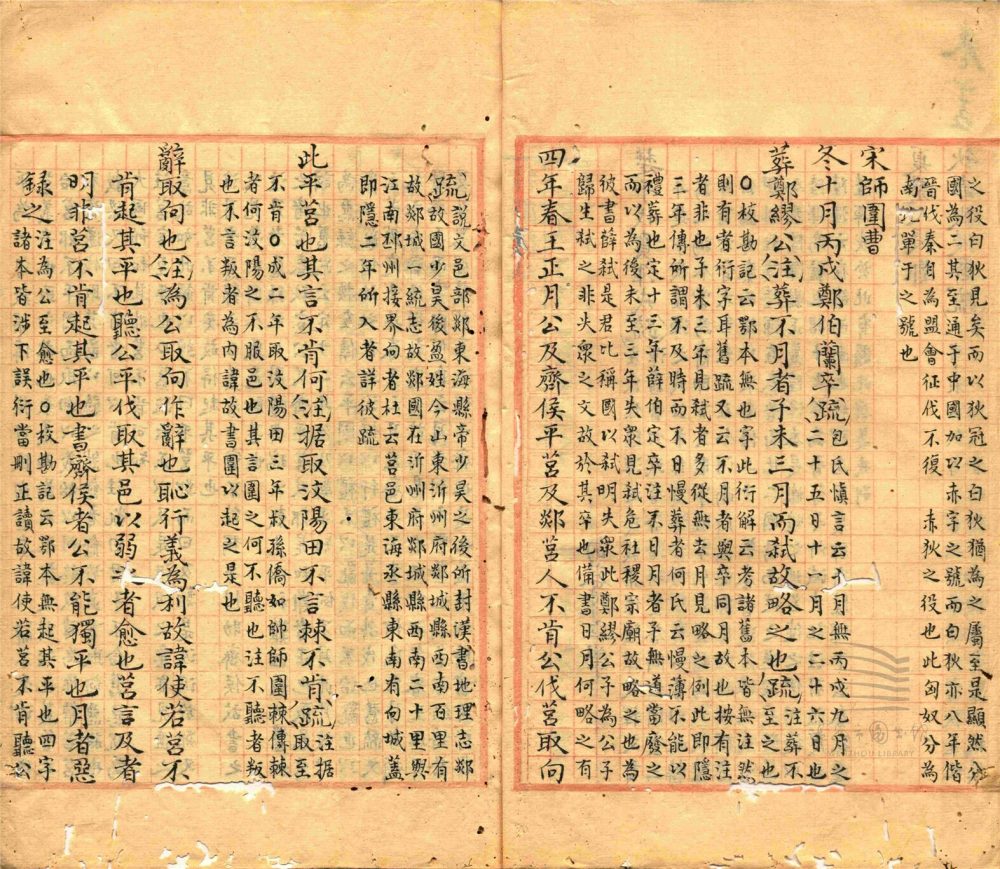 之役白狄見矣而以狄冠之白狄猶為之屬至是顯然分
國為二其至通于中國加以赤字之號而白狄亦八年偕
晉伐秦自為盟會征伐不復 赤狄之役也此匈奴分為
南 單于之號也
宋師圍曹
冬十月丙戌鄭伯蘭卒(疏)包氏慎言云十月無丙戌九月之
二十五日十一月之二十六日也
葬鄭繆公(注)葬不月者子未三月而弒故略之也(疏)注葬不
至之也
○校勘記云鄂本無也字此衍解云考諸舊本皆無注然
則有者衍字耳舊疏又云不月者與卒同月故也按有注
者非也子未三年見弒者多從無去月見略之例此即隱
三年傳所謂不及時而不日慢葬者何氏云慢薄不能以
禮葬也定十三年薛伯定卒注不日月者子無道當廢之
而以為後未至三年失衆見弒危社稷宗廟故略之也為
彼書薛弒是君比稱國以弒明失衆此鄭繆公子為公子
歸生弒之非失衆之文故於其卒也備書日月何略之有
四年春王正月公及齊侯平莒及郯莒人不肯公伐莒取向
(疏)說文邑部郯東海縣帝少昊之後所封漢書地理志郯
故國少昊後盈姓今山東沂州府郯城縣西南百里有
故郯城一統志故郯國在沂州府郯城縣西南二十里與
江南邳州接界向者杜云莒邑東海丞縣東南有向城蓋
即隱二年所入者詳彼疏
此平莒也其言不肯何(注)据取汶陽田不言棘不肯(疏)注据
取至
不肯○成二年取汶陽田三年叔孫僑如帥師圍棘傳棘
者何汶陽之不服邑也其言圍之何不聽也注不聽者叛
也不言叛者為內諱故書圍以起之是也
辭取向也(注)為公取向作辭也恥行義為利故諱使若莒不
肯起其平也聽公平伐取其邑以弱之者愈也莒言及者
明非莒不肯起其平也書齊侯者公不能獨平也月者惡
錄之注為公至愈也○校勘記云鄂本無起其平也四字
諸本皆涉下誤衍當刪正讀故諱使若莒不肯聽公